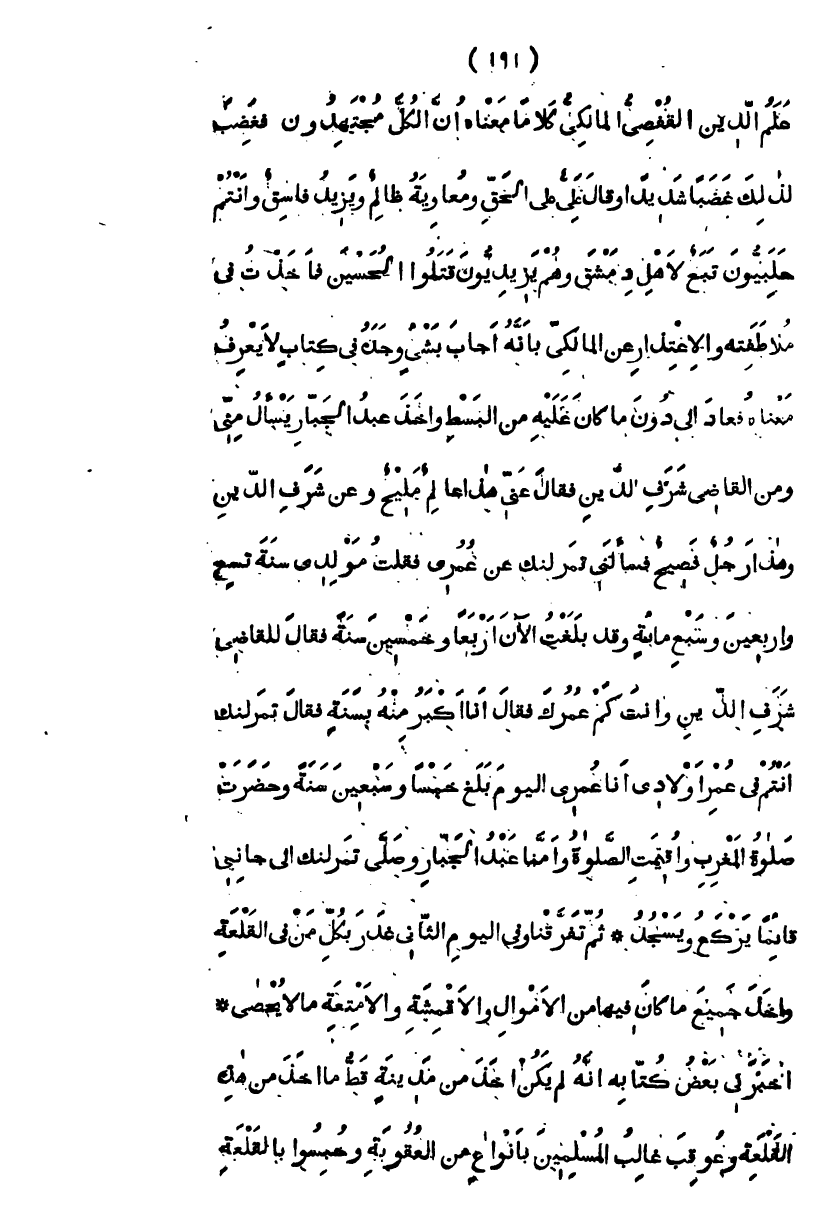 ( ١٩١ )
عَلَمُ الدِّينِ القُفْصِىُّ المالِكىُّ كَلامًا مَعْناه اَنَّ الكُلَّ مُجْتَهِدُون فَغَضِبَ
لذٰلِكَ غَضَبًا شَدِيدًا وقالَ عَلِىٌّ على الحَقِّ ومُعاوِيَةُ ظالِمٌ ويَزِيدُ فاسِقٌ وأنْتُمْ
حَلَبِيُّونَ تَبَعٌ لاَهْلِ دِمَشْقَ وهُمْ يَزِيدِيُّونَ قَتَلُوا الحُسَيْنَ فأخَذْتُ فى
مُلاطَفَتِه والإعْتِذارِ عن المالكىِّ بأنَّهُ أجابَ بشَىْءٍ وجَدَهُ فى كِتابٍ لا يَعْرِفُ
مَعْناهُ فعادَ الى دُونَ ما كان عَلَيْهِ من البَسْطِ واخَذَ عبدُ الجَبّارِ يَسْأَلُ مِنّى
ومن القاضِى شَرَفِ الدِّينِ فقالَ عَنّى هٰذا عالِمٌ مَلِيْحٌ وعن شَرَفِ الدِّينِ
وهٰذا رَجُلٌ فَصِيحٌ فسأَلَنى تمرلنك عن عُمُرِى فقلتُ مَوْلِدِى سَنَةَ تسعٍ
واربعينَ وسَبْعِ مائةٍ وقد بلَغْتُ الآنَ أرْبَعًا وخَمْسِينَ سَنَةً فقالَ للقاضِى
شَرَفِ الدِّينِ وانتَ كَمْ عُمُرُكَ فقالَ أنا أكْبَرُ مِنْهُ بِسَنَةٍ فقالَ تمرلنك
أنْتُمْ فى عُمْرِ أوْلادِى أنا عُمُرِى اليومَ بَلَغَ خَمْسًا وسَبْعِينَ سَنَةً وحَضَرَتْ
صَلٰوةُ المَغْرِبِ واُقِيْمَتِ الصَّلٰوةُ وأمَّنا عَبْدُ الجَبّارِ وصَلَّى تمَرلنك الى جانِبِى
قائِمًا يَرْكَعُ ويَسْجُدُ * ثُمَّ تَفَرَّقْنا وفِى اليومِ الثّانِى غَدَرَ بكُلِّ مَنْ فى القَلْعَةِ
واخَذَ جَمِيْعَ ما كانَ فيها من الاَمْوالِ والاَقْمِشَةِ والاَمْتِعَةِ مالا يُحْصٰى *
اَخْبَرَنِى بَعْضُ كُتّابِه انَّهُ لم يَكُنْ اَخَذَ من مَدِينَةٍ قَطُّ ما اخَذَ من هٰذِهِ
القَلْعَةِ وعُوقِبَ غالِبُ المُسْلِمِينَ بأنْواعٍ من العُقُوبَةِ وحُبِسُوا بالقَلْعَةِ